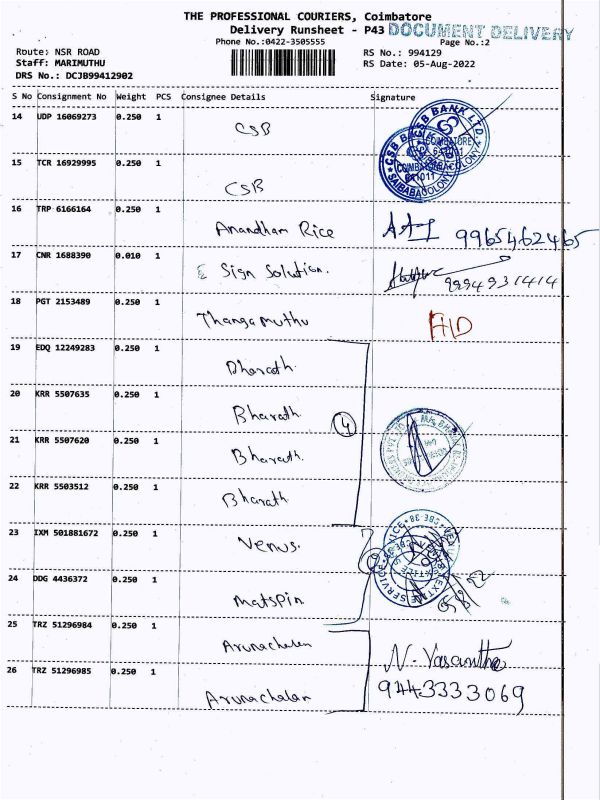 THE PROFESSIONAL COURIERS, Coimbatore
Delivery Runsheet - P43
DOCUMENT DELIVERY
Phone No.:0422-3505555
Page No.:2
Route: NSR ROAD
RS No.: 994129
Staff: MARIMUTHU
RS Date: 05-Aug-2022
DRS No.: DCJB99412902
S No Consignment No Weight PCS Consignee Details Signature
14 UDP 16069273 0.250 1 CSB
CSB BANK LTD.
COIMBATORE
641011
SAIBABA COLONY
15 TCR 16929995 0.250 1 CSB
16 TRP 6166164 0.250 1 Anandham Rice 9965462465
17 CNR 1688390 0.010 1 Sign Solution. 9994931414
18 PGT 2153489 0.250 1 Thangamuthu
19 EDQ 12249283 0.250 1 Bharath
20 KRR 5507635 0.250 1 Bharath
4
21 KRR 5507620 0.250 1 Bharath
22 KRR 5503512 0.250 1 Bharath
23 IXM 501881672 0.250 1 Venus
24 DDG 4436372 0.250 1 Matspin
25 TRZ 51296984 0.250 1 Arunachalam N. Vasantha
26 TRZ 51296985 0.250 1 Arunachalam 9443333069